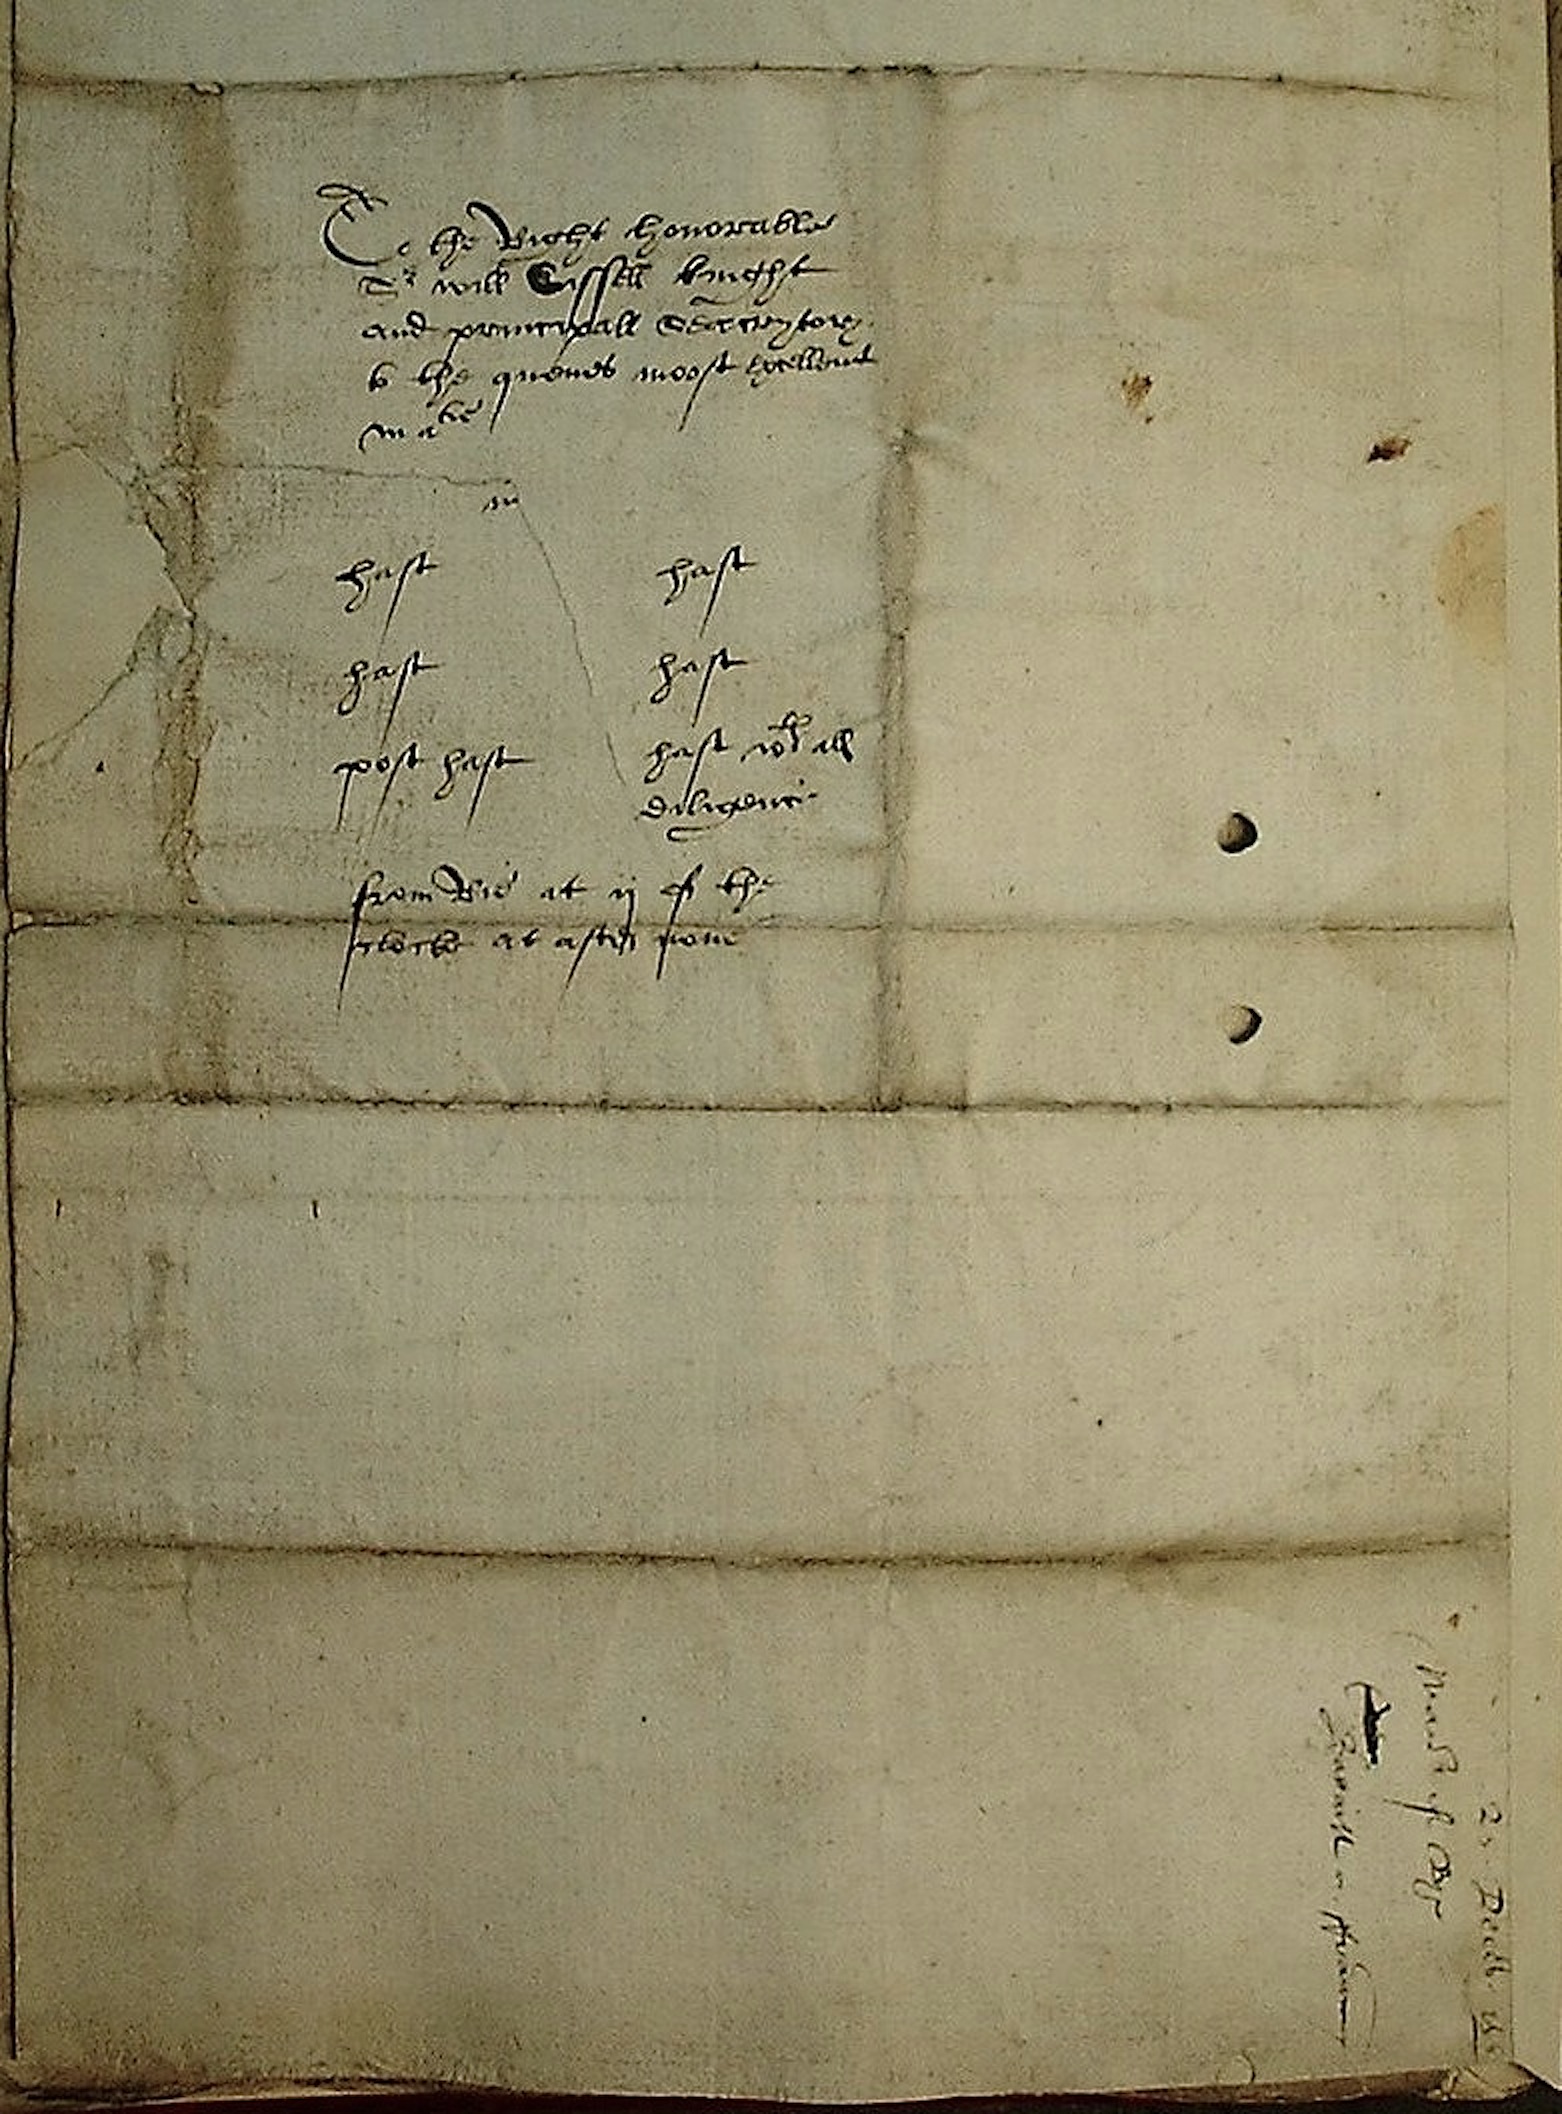 To the Right honorable
Sr will Cissell knyght
and pryncypall Seccreytory
to the quenes moost excellent
matie
in
hast hast
hast hast
post hast hast wth all
diligenc
from Rie at ij of the
clocke at after none
2. Decēb.
of Rye